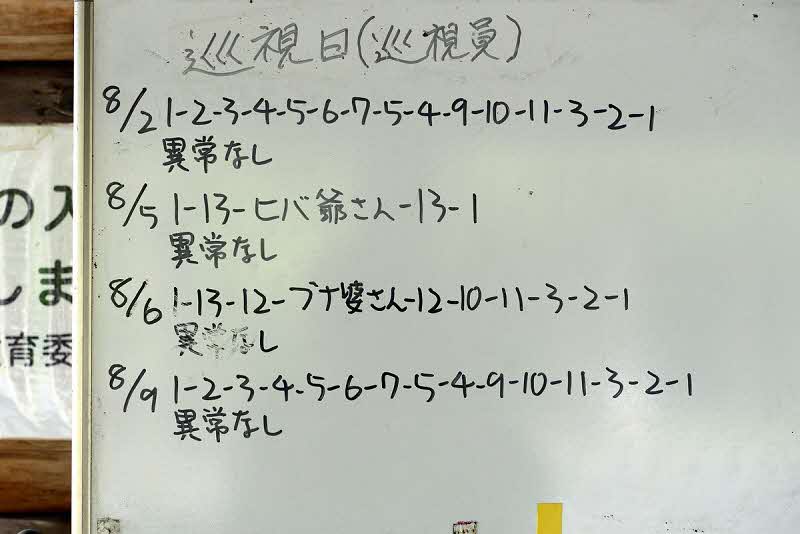 巡視日(巡視員)
8/2 1-2-3-4-5-6-7-5-4-9-10-11-3-2-1
異常なし
8/5 1-13-ヒバ爺さん-13-1
異常なし
8/6 1-13-12-ブナ婆さん-12-10-11-3-2-1
異常なし
8/9 1-2-3-4-5-6-7-5-4-9-10-11-3-2-1
異常なし
の入
しま
育委